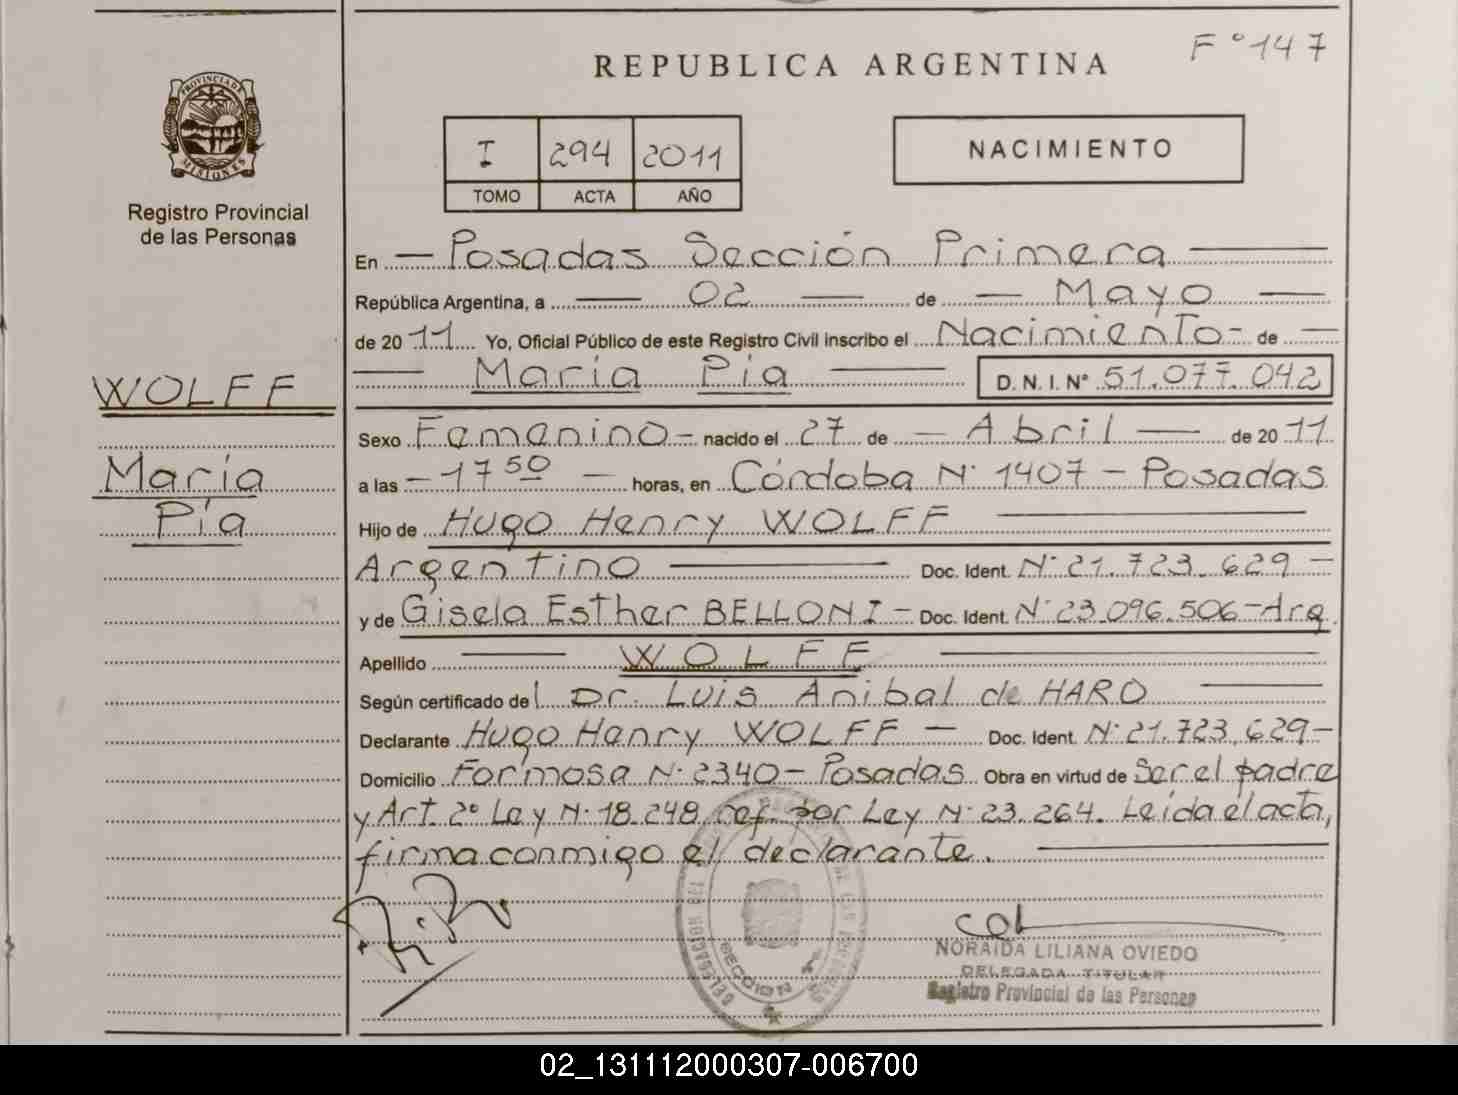 F° 147
REPUBLICA ARGENTINA
PROVINCIA DE
MISIONES
Registro Provincial
de las Personas
I 294 2011
TOMO ACTA AÑO
NACIMIENTO
En — Posadas Sección Primera —
República Argentina, a — 02 — de — Mayo —
de 20 11 Yo, Oficial Público de este Registro Civil inscribo el Nacimiento - de —
— María Pía — D. N. I. N° 51.077.042
WOLFF
María
Pía
Sexo Femenino - nacido el 27 de — Abril — de 20 11
a las - 17 50 - horas, en Córdoba N° 1407 - Posadas
Hijo de Hugo Henry WOLFF —
Argentino — Doc. Ident. N° 21.723.629 -
y de Gisela Esther BELLONI - Doc. Ident. N° 23.096.506 - Arg.
Apellido — WOLFF —
Según certificado del Dr. Luis Anibal de HARO —
Declarante Hugo Henry WOLFF — Doc. Ident. N° 21.723.629 -
Domicilio Formosa N° 2340 - Posadas Obra en virtud de Ser el padre
y Art. 2° Ley N° 18.248 ref. por Ley N° 23.264. Leída el acta,
firma conmigo el declarante. —
SECCION 1
NORAIDA LILIANA OVIEDO
DELEGADA TITULAR
Registro Provincial de las Personas
02_131112000307-006700